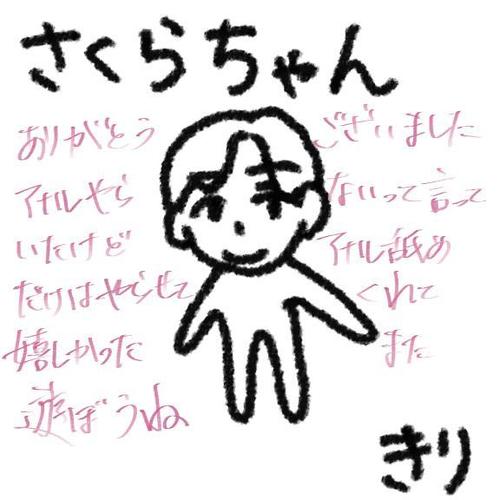 さくらちゃん
ありがとう ございました
アナルやら ないって言って
いたけど アナル舐め
だけはやらせて くれて
嬉しかった また
遊ぼうね
きり